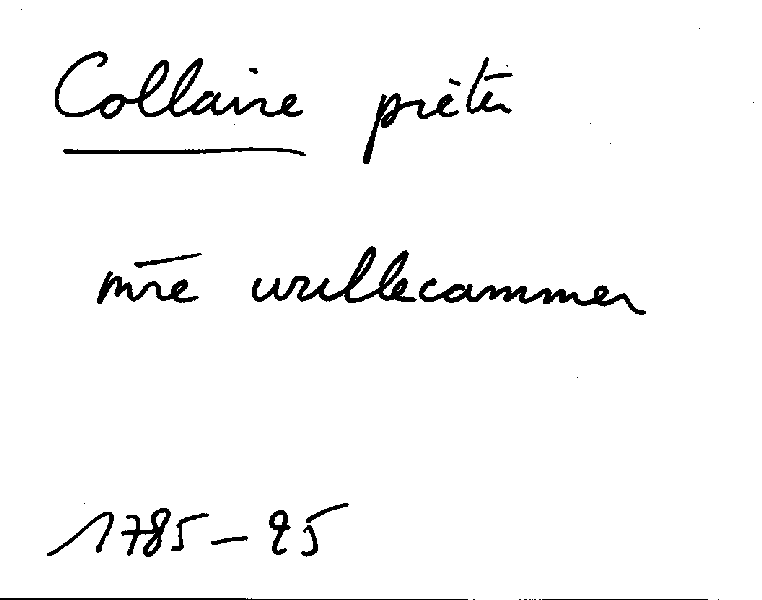 Collaire pièter
mre wullecammer
1785-95